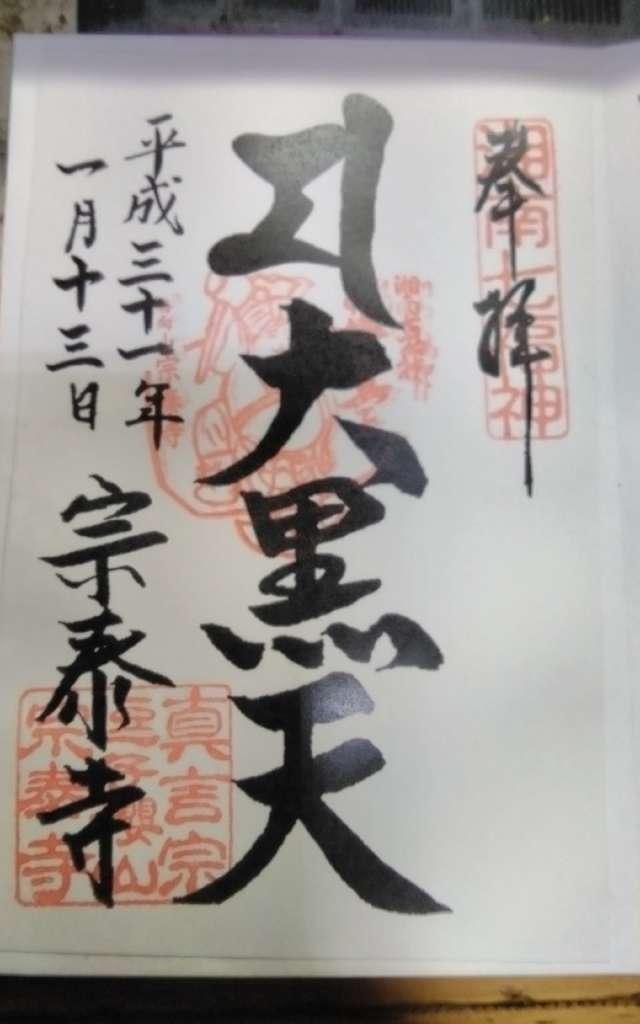 奉拝
湘南七福神
大黒天
平成三十一年
一月十三日
宗泰寺
真言宗
宗泰寺